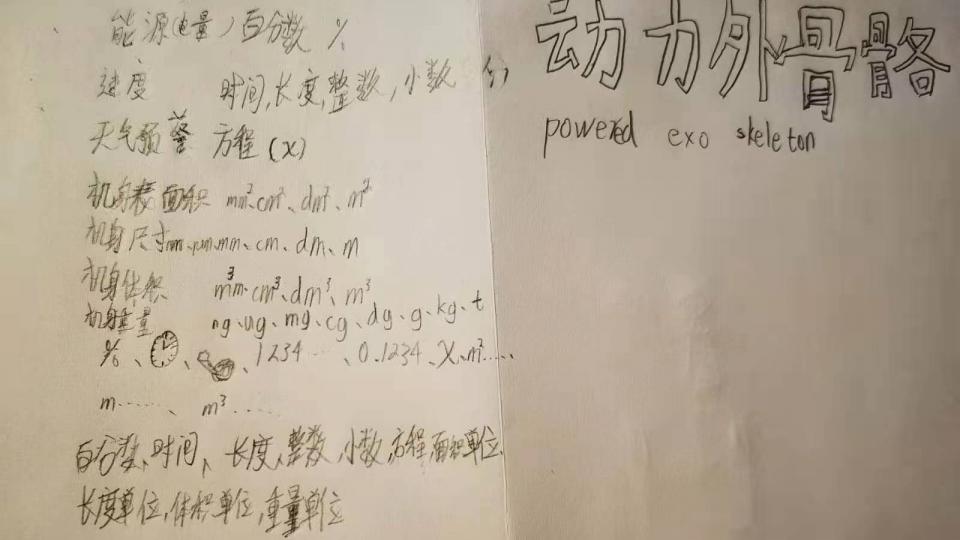 能源(电量) 百分数 %
速度 时间,长度,整数,小数
天气预警 方程(x)
机身表面积 mm²、cm²、dm²、m²
机身尺寸nm、μm、mm、cm、dm、m
机身体积 mm³、cm³、dm³、m³
机身重量 ng、ug、mg、cg、dg、g、kg、t
%、、、1234……、0.1234、X、m²……
m……、m³……
百分数、时间、长度、整数,小数,方程,面积单位、
长度单位,体积单位,重量单位
动力外骨骼
powered exo skeleton